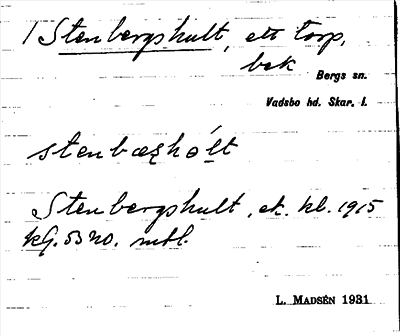 1 Stenbergshult, ett torp,
bek
Bergs sn.
Vadsbo hd. Skar. l.
stenbæʒhólt
Stenbergshult, ek. kl. 1915
kG. 53 no. mtl.
L. MADSÉN 1931